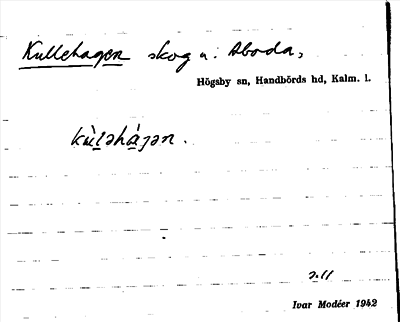 Kullehagen skog u. Aboda,
Högsby sn, Handbörds hd, Kalm. l.
kùləhájən.
Ivar Modéer 1942